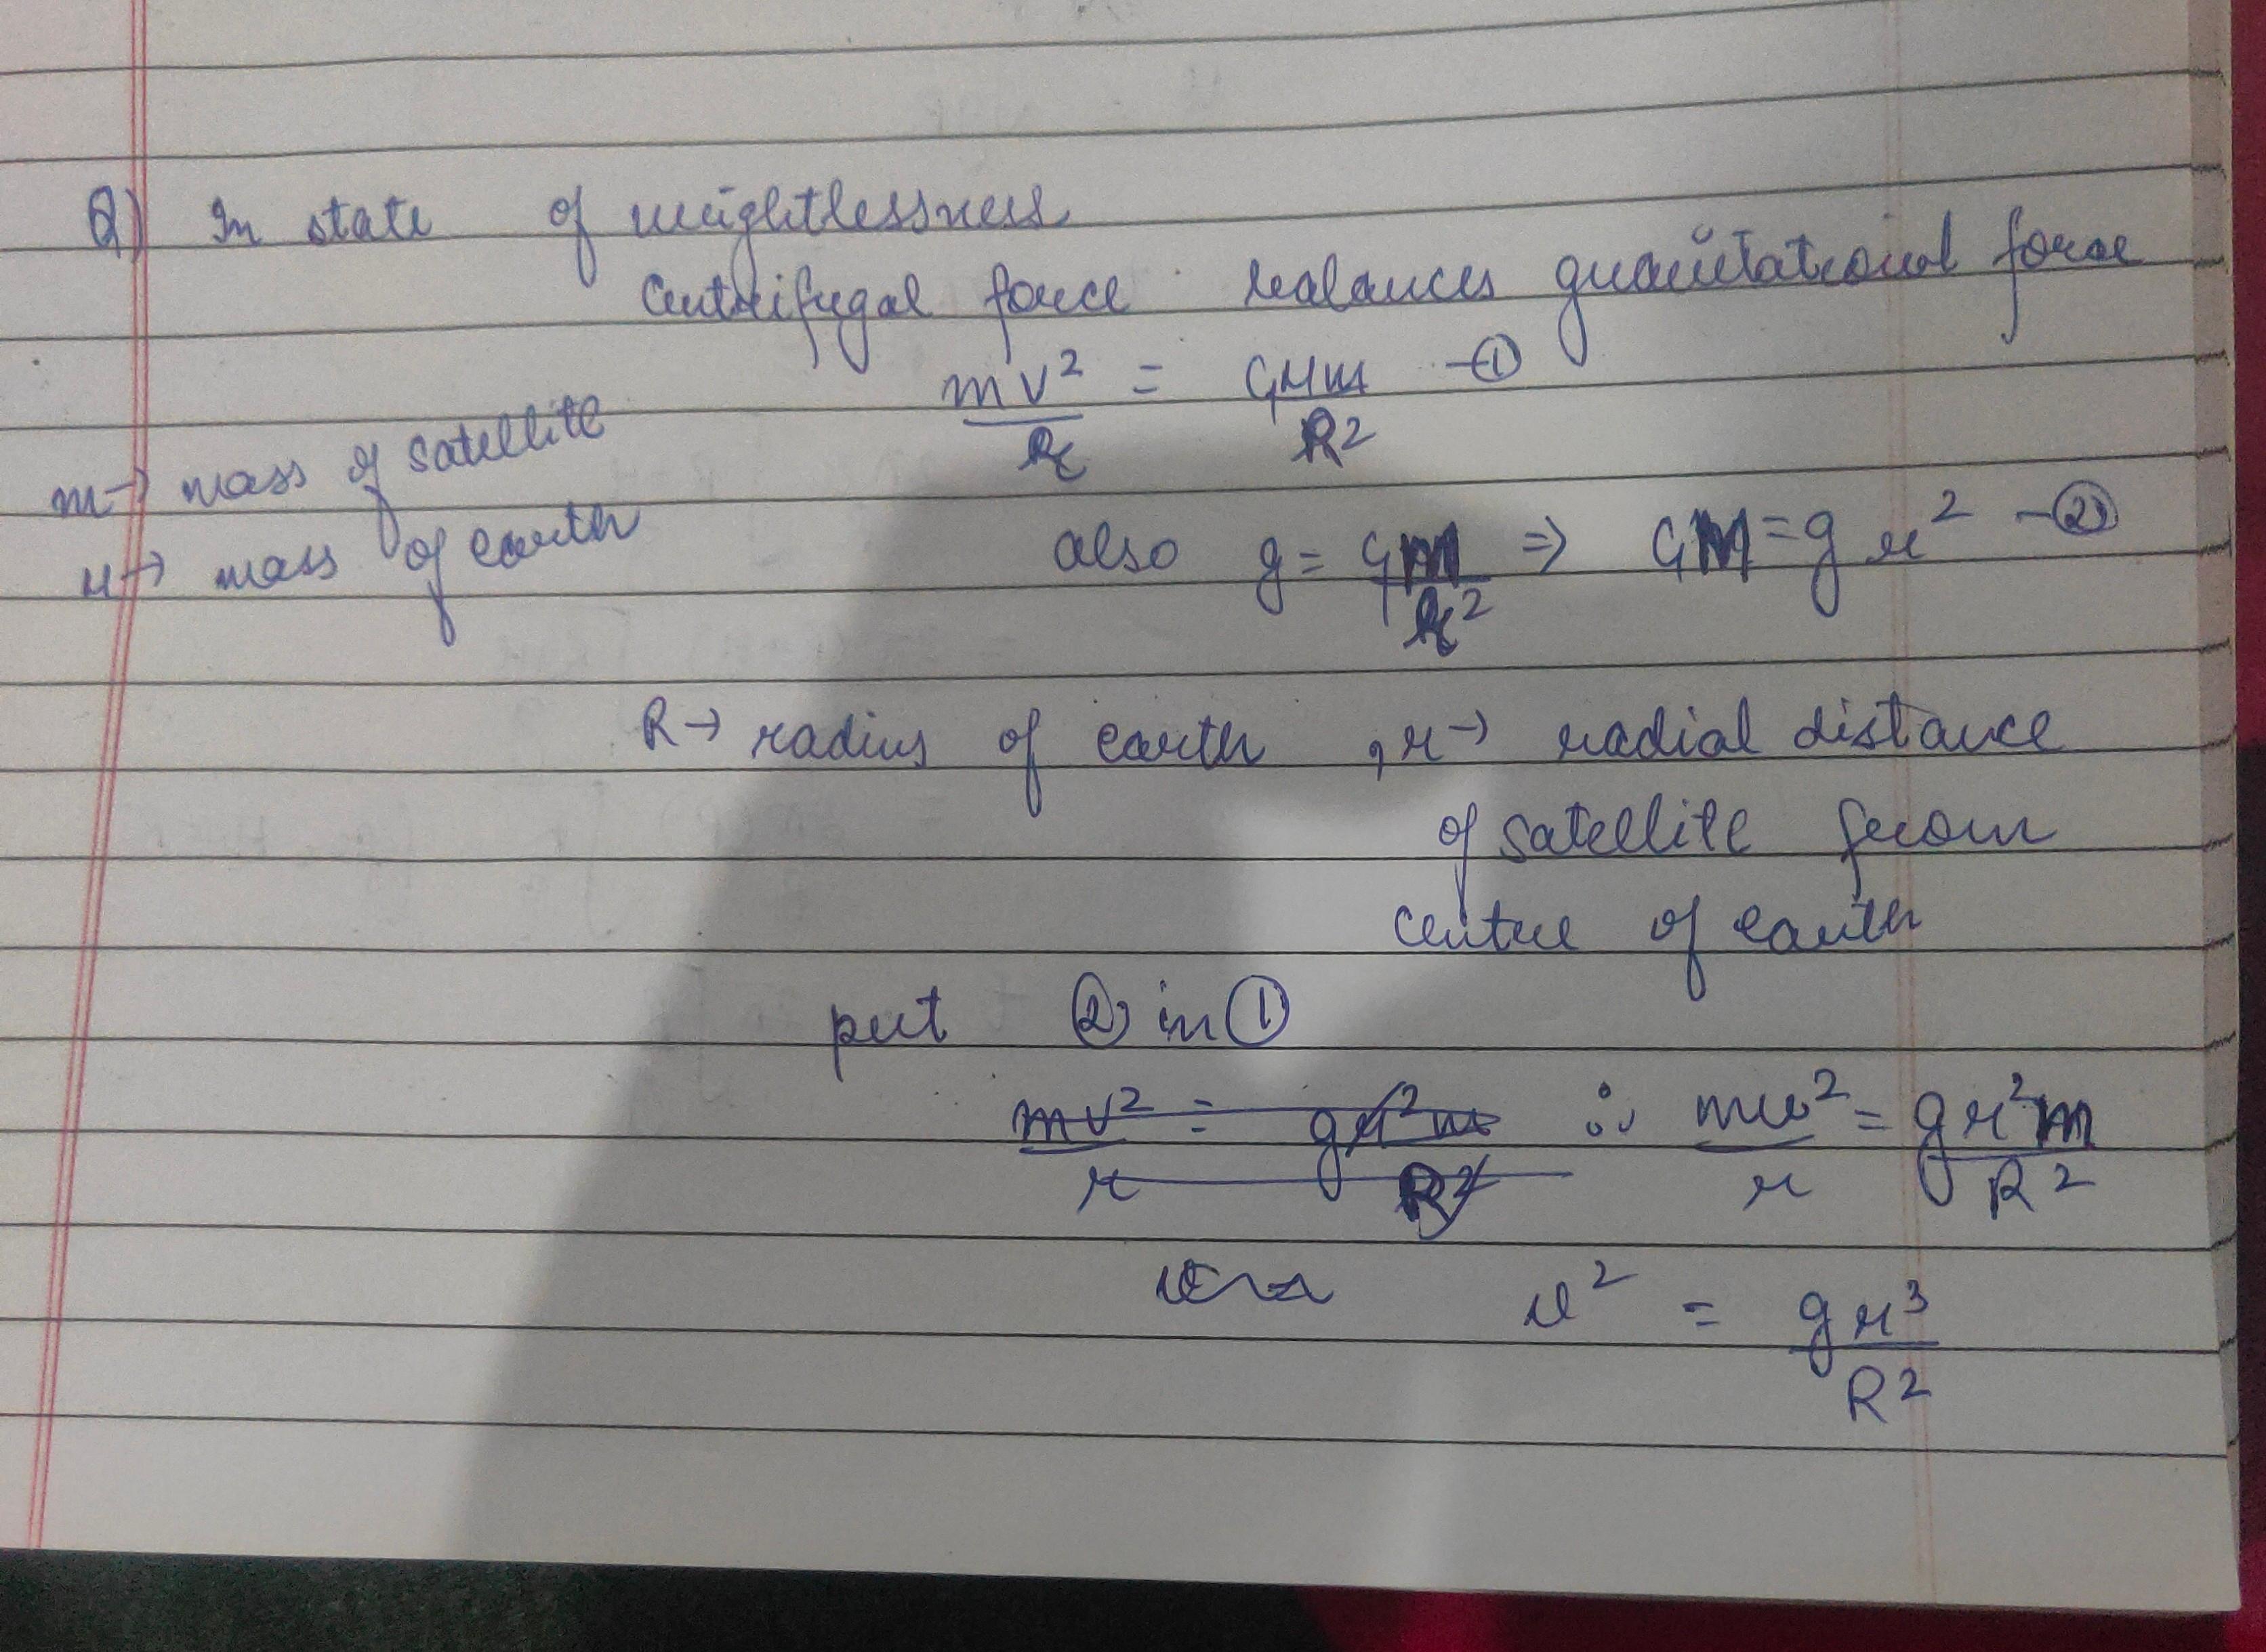 Q) In state of weightlessness
Centrifugal force balances gravitational force
mv²/r = GMm/R² - ①
m → mass of satellite
M → mass of earth
also g = GM/r² ⇒ GM = g r² - ②
R → radius of earth , r → radial distance
of satellite from
centre of earth
put ② in ①
mv²/r = gr²m/R² ∴ mv²/r = gr²m/R²
v² = gr³/R²